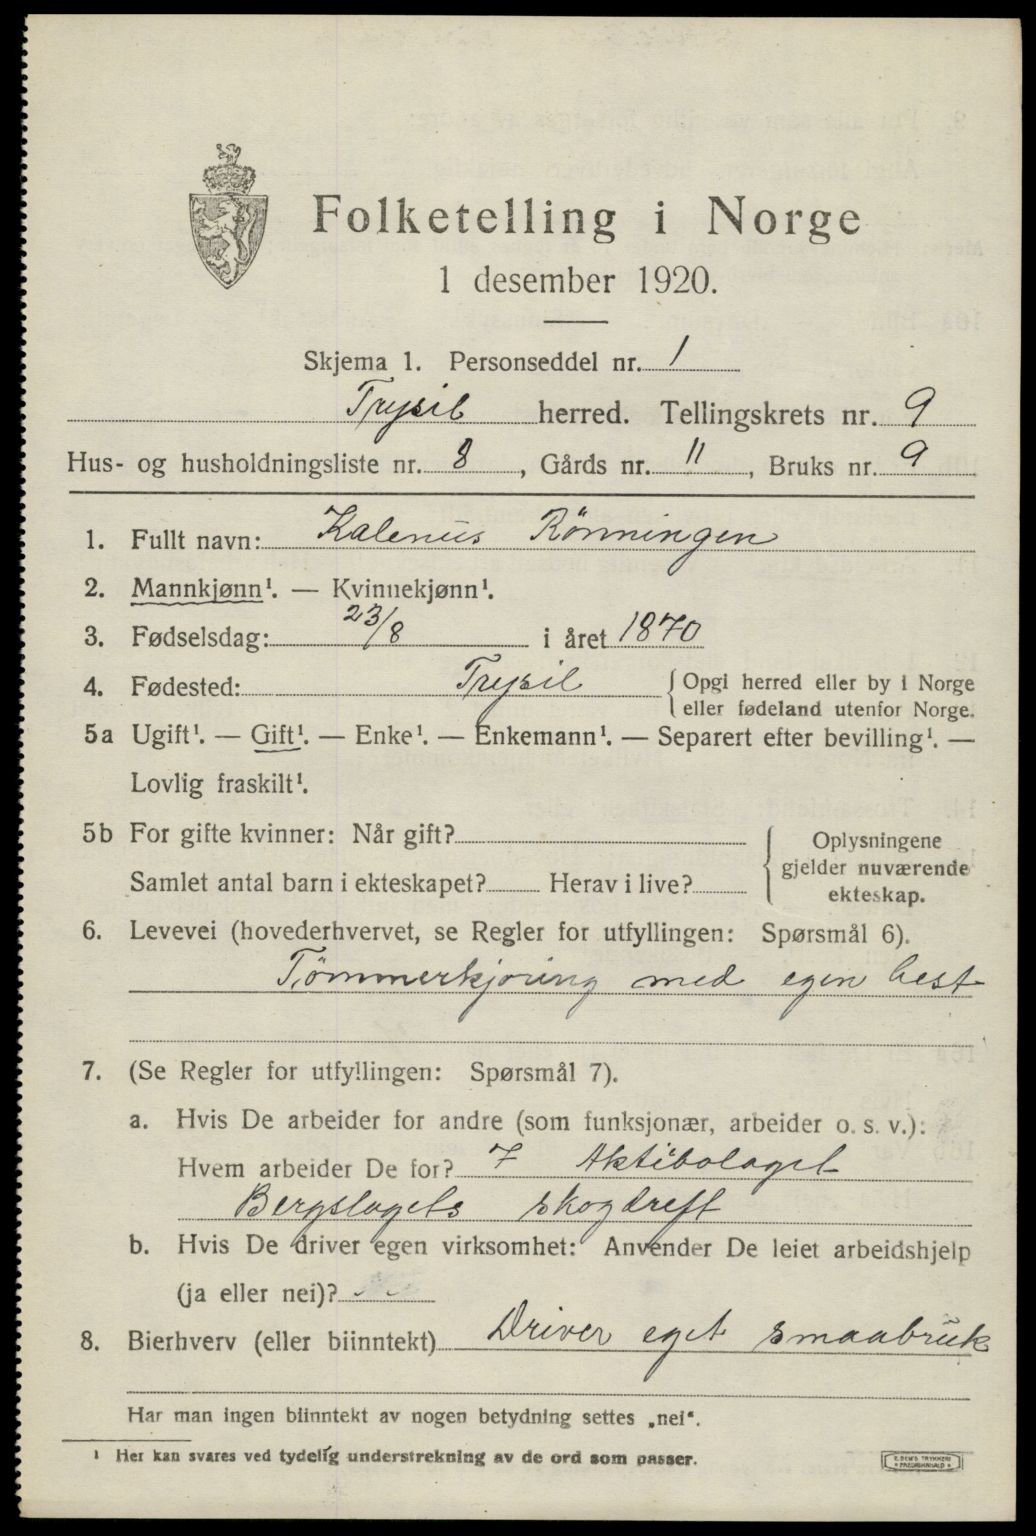 Folketelling i Norge
1 desember 1920.
Skjema 1. Personseddel nr. 1
Trysil herred. Tellingskrets nr. 9
Hus- og husholdningsliste nr. 8, Gårds nr. 11, Bruks nr. 9
1. Fullt navn: Kalenus Rönningen
2. Mannkjønn¹. — Kvinnekjønn¹.
3. Fødselsdag: 23/8 i året 1870
4. Fødested: Trysil { Opgi herred eller by i Norge
eller fødeland utenfor Norge.
5a Ugift¹. — Gift¹. — Enke¹. — Enkemann¹. — Separert efter bevilling¹. —
Lovlig fraskilt¹.
5b For gifte kvinner: Når gift?
Samlet antal barn i ekteskapet? Herav i live?
Oplysningene
gjelder nuværende
ekteskap.
6. Levevei (hovederhvervet, se Regler for utfyllingen: Spørsmål 6).
Tömmerkjöring med egen hest
7. (Se Regler for utfyllingen: Spørsmål 7).
a. Hvis De arbeider for andre (som funksjonær, arbeider o. s. v.):
Hvem arbeider De for? 7 Aktibolaget
Bergslagets skogdreft
b. Hvis De driver egen virksomhet: Anvender De leiet arbeidshjelp
(ja eller nei)?
8. Bierhverv (eller biinntekt) Driver eget smaabruk
Har man ingen biinntekt av nogen betydning settes „nei“.
¹ Her kan svares ved tydelig understrekning av de ord som passer.